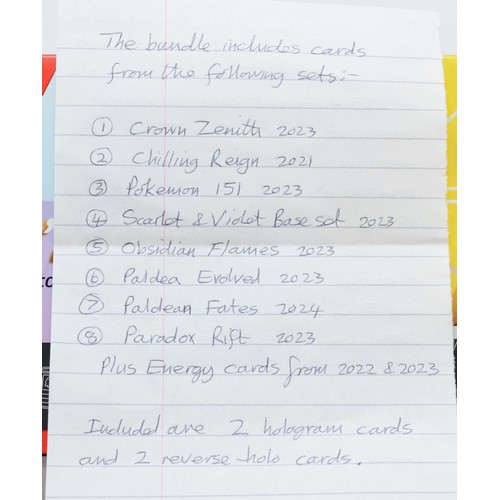 The bundle includes cards
from the following sets:-
① Crown Zenith 2023
② Chilling Reign 2021
③ Pokemon 151 2023
④ Scarlet & Violet Base set 2023
⑤ Obsidian Flames 2023
⑥ Paldea Evolved 2023
⑦ Paldean Fates 2024
⑧ Paradox Rift 2023
Plus Energy cards from 2022 & 2023
Included are 2 hologram cards
and 2 reverse holo cards.